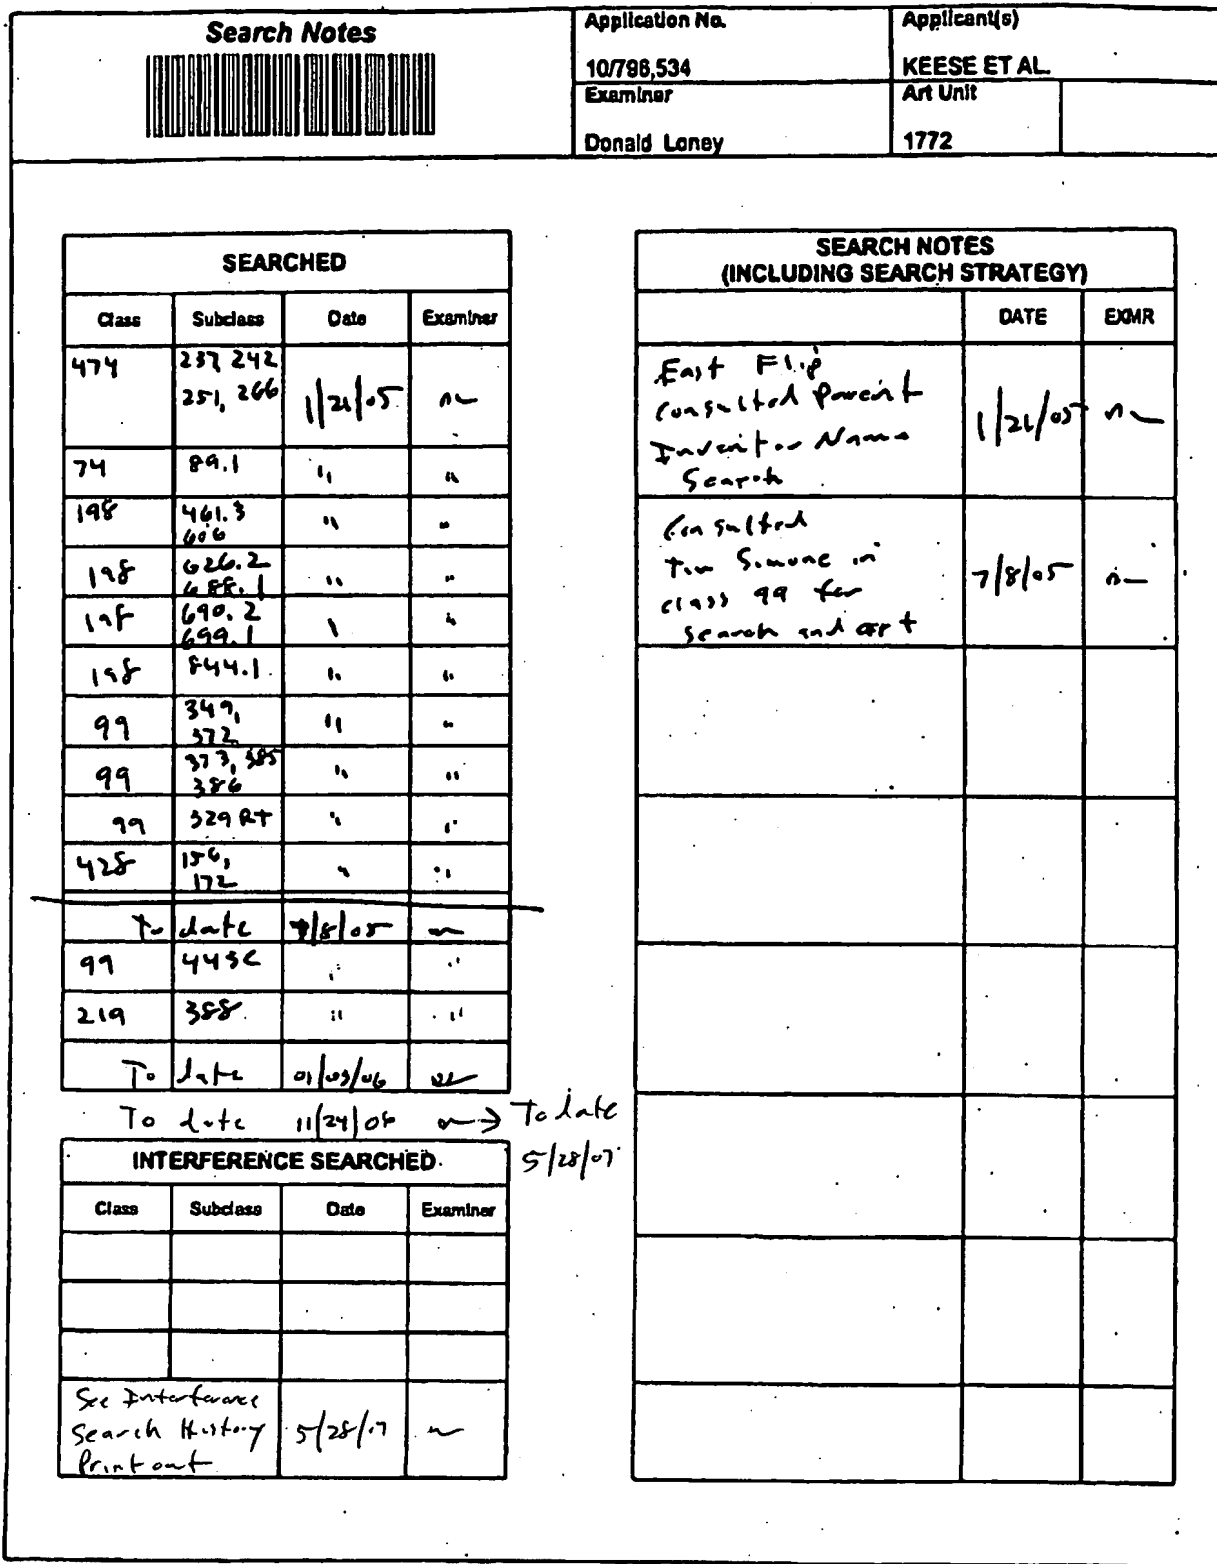 Search Notes
Application No.
Applicant(s)
10/796,534
KEESE ET AL.
Examiner
Art Unit
Donald Loney
1772
SEARCHED
Class Subclass Date Examiner
474 237, 242
251, 266 1/21/05
74 89.1 " "
198 461.3 " "
606
198 626.2 " "
688.1
198 690.2 "
699.1
198 844.1 " "
99 349, " "
372
99 373, 385 " "
386
99 329 R+ " "
428 156, " "
172
To date 7/8/05
99 443C " "
219 388 " "
To date 01/03/06
To date 11/24/06 → To date
5/28/07
INTERFERENCE SEARCHED
Class Subclass Date Examiner
See Interference
Search History 5/28/07
Print out
SEARCH NOTES
(INCLUDING SEARCH STRATEGY)
DATE EXMR
East Flip
Consulted Parent
Inventor Name 1/21/05
Search
Consulted
Tim Simone in
class 99 for 7/8/05
search and art